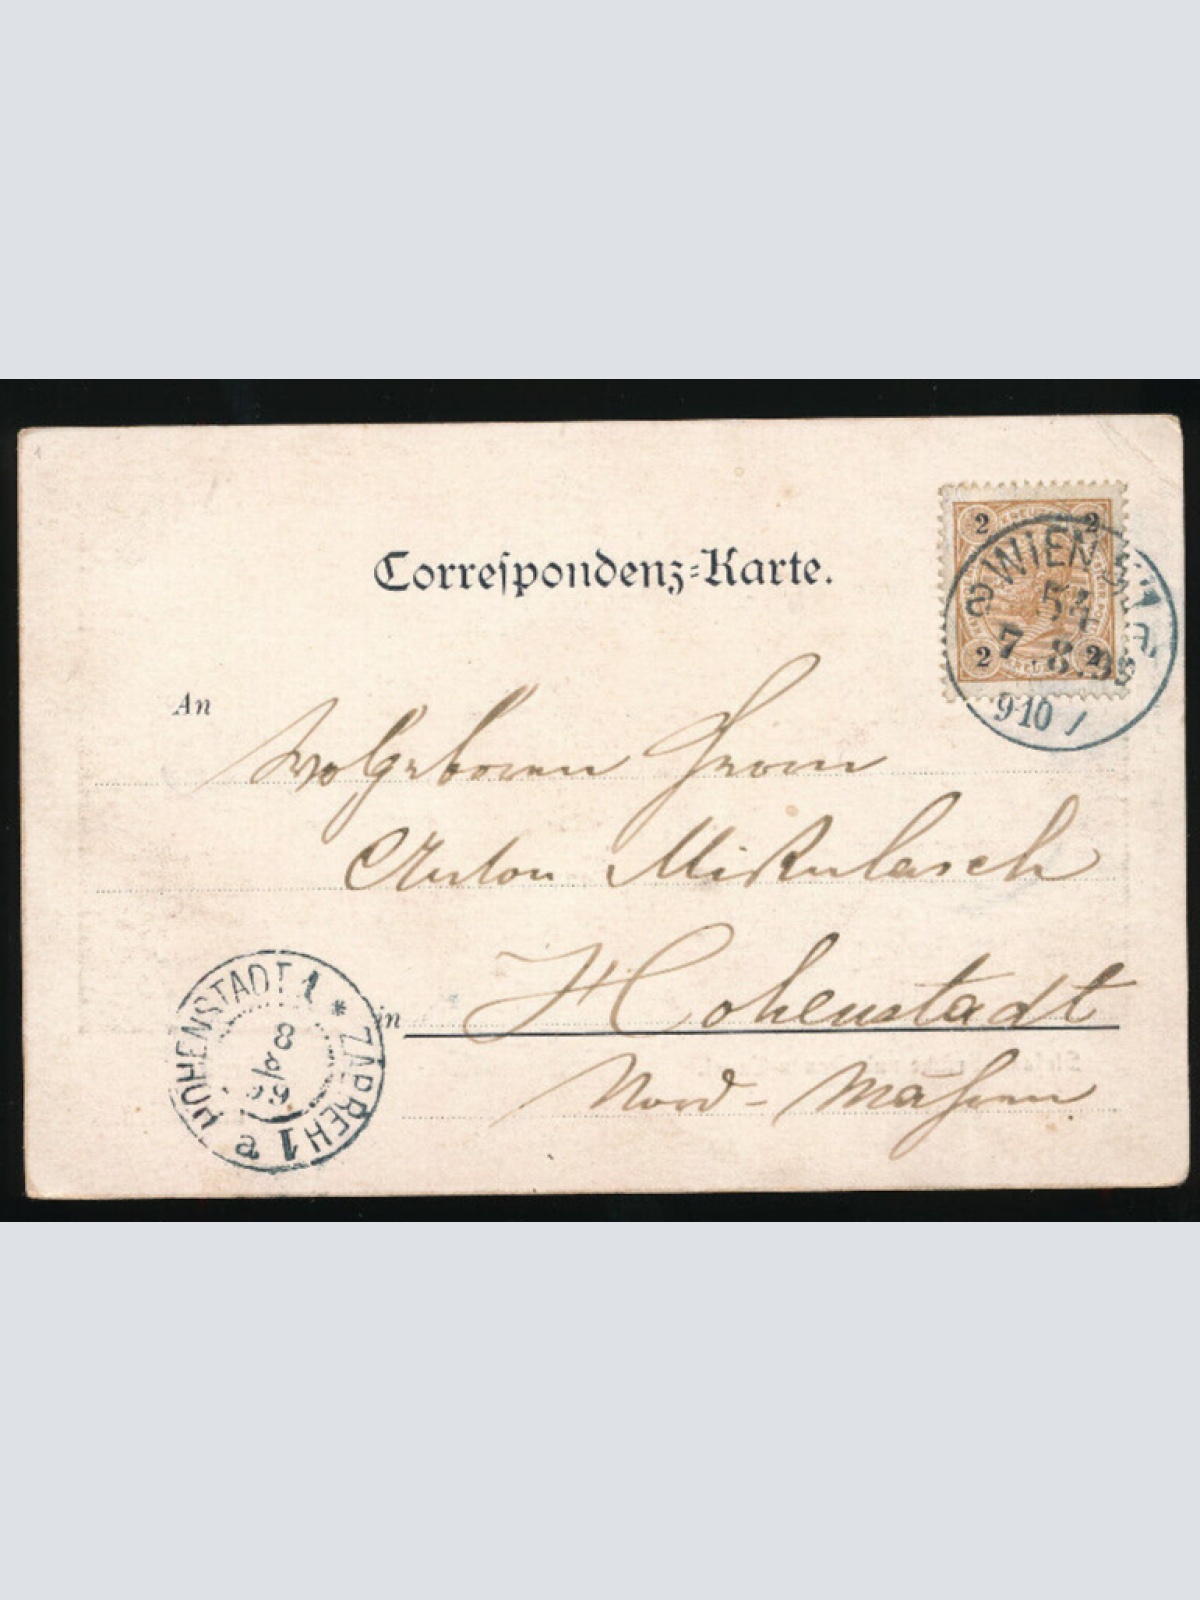 Correspondenz-Karte.
2 KREU 2
WIEN
54
7 8.99
2 2
9 10
An
Wolgeboren Herrn
Anton Mikulasch
in Hohenstadt
Nord-Mähren
HOHENSTADT 1 * ZÁBŘEH 1 a
8
8
99